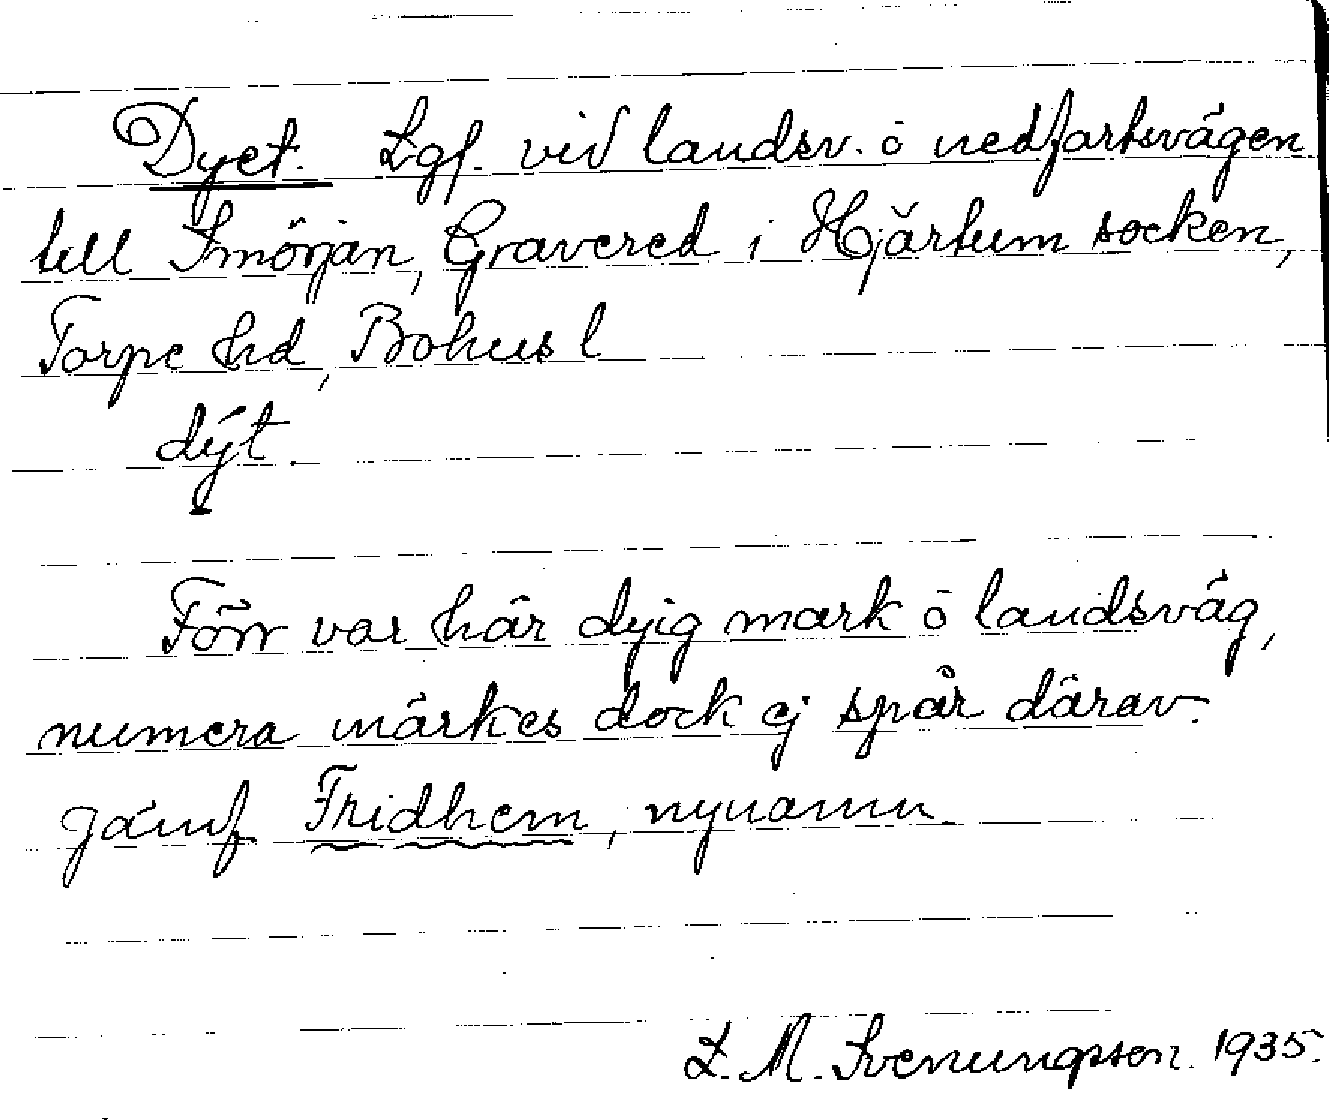 Dyet. Lgf. vid landsv. o nedfartsvägen
till Smörjan, Gravered i Hjärtum socken,
Torpe hd, Bohusl
dýt.
Förr var här dyig mark o landsväg,
numera märkes dock ej spår därav.
Jämf Fridhem, nynamn
L. M. Svenungsson. 1935.